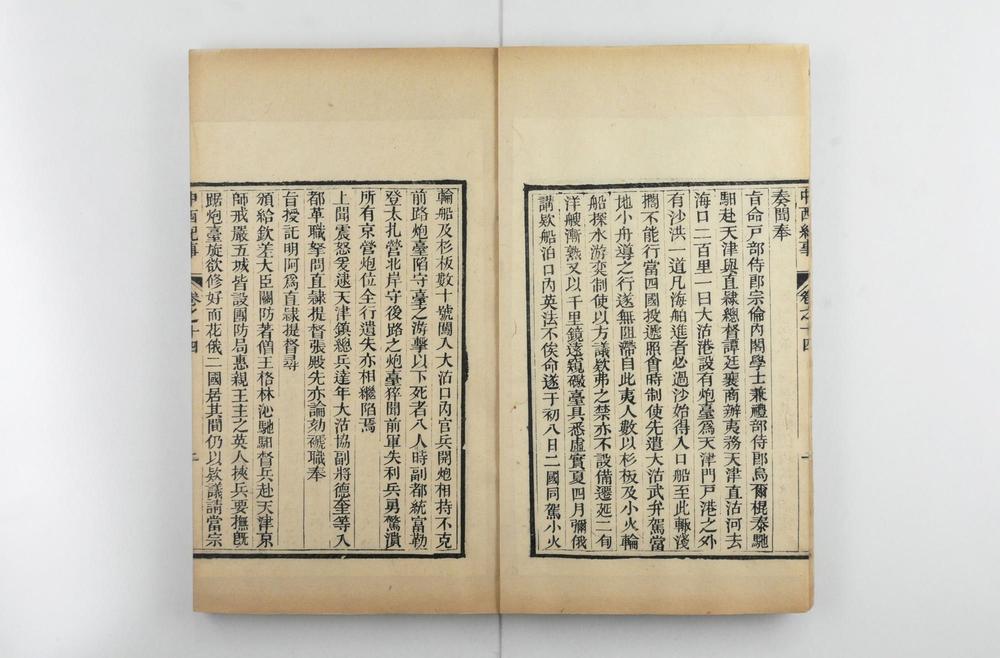 中西紀事
卷之十四
奏聞奉
旨命戸部侍郎宗倫內閣學士兼禮部侍郎烏爾棍泰馳
馹赴天津與直隷總督譚廷襄商辦夷務天津直沽河去
海口二百里一日大沽港設有炮臺爲天津門戸港之外
有沙洪一道凡海舶進者必過沙始得入口船至此輙淺
擱不能行當四國投遞照會時制使先遣大沽武弁駕當
地小舟導之行遂無阻滯自此夷人數以杉板及小火輪
船探水游奕制使以方議欵弗之禁亦不設備遷延二旬
洋艘漸熟又以千里鏡遠窺礮臺具悉虛實夏四月彌俄
講欵船泊口內英法不俟命遂于初八日二國同駕小火
輪船及杉板數十號闖入大沽口內官兵開炮相持不克
前路炮臺陷守臺之游擊以下死者八人時副都統富勒
登太扎營北岸守後路之炮臺猝聞前軍失利兵勇驚潰
所有京營炮位全行遺失亦相繼陷焉
上聞震怒爰逮天津鎮總兵達年大沽協副將德奎等入
都革職拏問直隷提督張殿先亦論劾褫職奉
旨授託明阿爲直隷提督尋
頒給欽差大臣關防著僧王格林沁馳馹督兵赴天津京
師戒嚴五城皆設團防局惠親王主之英人挾兵要撫旣
踞炮臺旋欲修好而花俄二國居其間仍以欵議請當宗
中西紀事
卷之十四
二